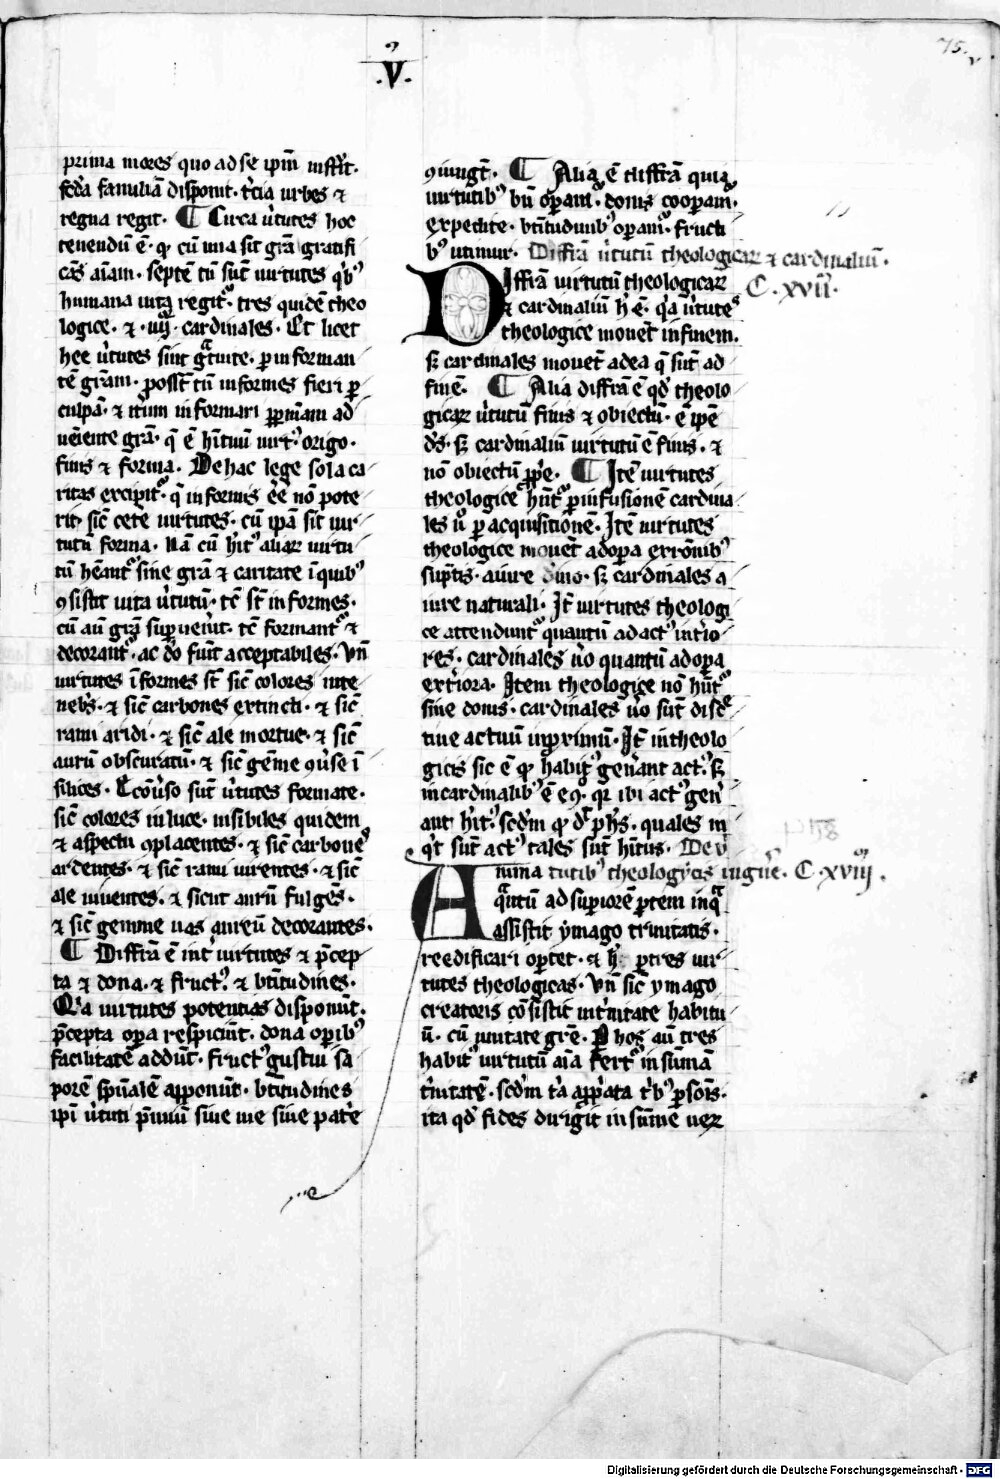 .V.
75.
prima mores quo ad se ipm̄ instr̄it.
sc̄da familiā disponit. t̄cia urbes ⁊
regna regit. ¶ Circa ū̓tutes hoc
tenendū ē. ꝙ cū una sit gr̄a gratifi
cās aīam. septē tn̄ sūt uirtutes qⁱbꝰ
humana uita regit᷒. tres quidē theo
logice. ⁊ .iiij. cardinales. Et licet
hee ū̓tutes sint gᵃtuite. ꝑ informan
tē gr̄am. poss̄t tn̄ informes fieri ꝑ
culpā. ⁊ it̄um informari ꝑ pn̄iam ad
ueniente gr̄a. q̄ ē hītuū uirt᷒. origo.
finis ⁊ forma. De hac lege sola ca
ritas excipit᷒. q̄ informis ēē nō pote
rit. sic̄ cetē uirtutes. cū ip̄a sit uir
tutū forma. Nā cū hn̄t᷒ aliaꝝ uirtu
tū hēant᷒ sine gr̄a ⁊ caritate ī quibꝰ
ꝯsistit uita ū̓tutū. tc̄ st̄ informes.
cū aū gr̄a suꝑuen̄it. tc̄ formant᷒ ⁊
decorant᷒. ac dō fiūt acceptabiles. Vn̄
uirtutes īformes st̄ sic̄ colores in te
neb̄s. ⁊ sic̄ carbones extincti. ⁊ sic̄
rami aridi. ⁊ sic̄ ale mortue. ⁊ sic̄
aurū obscuratū. ⁊ sic̄ gēme ꝯū̓se ī
silices. Ecōūso sūt ū̓tutes formate.
sic̄ colores in luce. uisibiles quidem
⁊ aspectu ꝯplacentes. ⁊ sic̄ carbones
ardentes. ⁊ sic̄ rami uirentes. ⁊ sic̄
ale uiuentes. ⁊ sicut aurū fulgēs.
⁊ sic̄ gemme uas aureū decorantes.
¶ Diffr̄a ē int̄ uirtutes ⁊ p̄cep
ta ⁊ dona. ⁊ fruct᷒. ⁊ btītudines.
Qⁱa uirtutes potentias disponūt.
p̄cepta oꝑa respiciūt. dona oꝑibꝰ
facilitatē addūt. fructꝰ gustui sa
porē spūalē apponūt. btītudines
ip̄i ū̓tuti p̄miū siue uie siue pat̄e
ꝯiungt̄. ¶ Alia ē diffr̄a quia
uirtutibꝰ bn̄ oꝑam᷒. donis cooꝑam᷒.
expedite. btītudinibꝰ oꝑam᷒. fructi
bꝰ utimur. Diffr̄a ū̓tutū theologicaꝝ ⁊ cardinaliū.
C. xvij.
Diffr̄a uirtutū theologicaꝝ
⁊ cardinaliū h̄ ē. qⁱa ū̓tutes
theologice mouēt in finem.
sꝫ cardinales mouēt ad ea q̄ sūt ad
finē. ¶ Alia diffr̄a ē qd̓ theolo
gicaꝝ ū̓tutū finis ⁊ obiectū. ē ip̄e
d̄s. sꝫ cardinaliū uirtutū ē finis. ⁊
nō obiectū ꝓpe. ¶ Itē uirtutes
theologice hn̄t᷒ ꝑ infusionē cardina
les ū̓ ꝑ acquisitionē. Itē uirtutes
theologice mouēt ad oꝑa
sup̄tis. a iure diuino. sꝫ cardinales a
iure naturali. It̄ uirtutes theologi
ce attendunt᷒ quantū ad actꝰ int̄io
res. cardinales ū̓o quantū ad oꝑa
ext̄iora. Item theologice nō hn̄t᷒
sine donis. cardinales ū̓o sūt
tiue actuū It̄ in theolo
gicis sic ē ꝙ habitꝰ gen̄ant actꝰ. sꝫ
in cardinalibꝰ ē eꝯ. qꝛ ibi actꝰ gen̄
ant hītꝰ. scd̄m ꝙ dꝛ phs̄. quales in
qⁱt sūt actꝰ tales sūt hītus. De ū̓
tutibꝰ theologicis in gn̄e. C. xviij.
Anima
qᵃntū ad suꝑiorē ꝑtem in qᵃ
assistit ymago trinitatis.
reedificari oꝑtet. ⁊ h̄ ꝑ tres uir
tutes theologicas. Vn̄ sic̄ ymago
creatōis cōsistit in t̄nitate habitu
ū. cū unitate gr̄e. Ꝑ hos aū tres
habitꝰ uirtutū aīa fert᷒ in sūmā
t̄nitatē. scd̄m t̄a app̄ata t̄bꝰ ꝑsonis.
ita qd̓ fides dirigit in sūmē ueꝝ
Digitalisierung gefördert durch die Deutsche Forschungsgemeinschaft - DFG